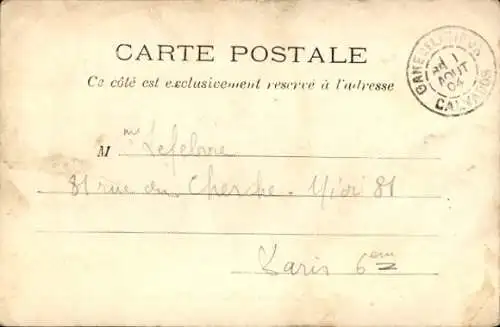 CARTE POSTALE
Ce côté est exclusivement reservé à l'adresse
AOUT
04
CALVADOS
Mme Lefebvre
81 rue du Cherche-Midi 81
Paris 6em